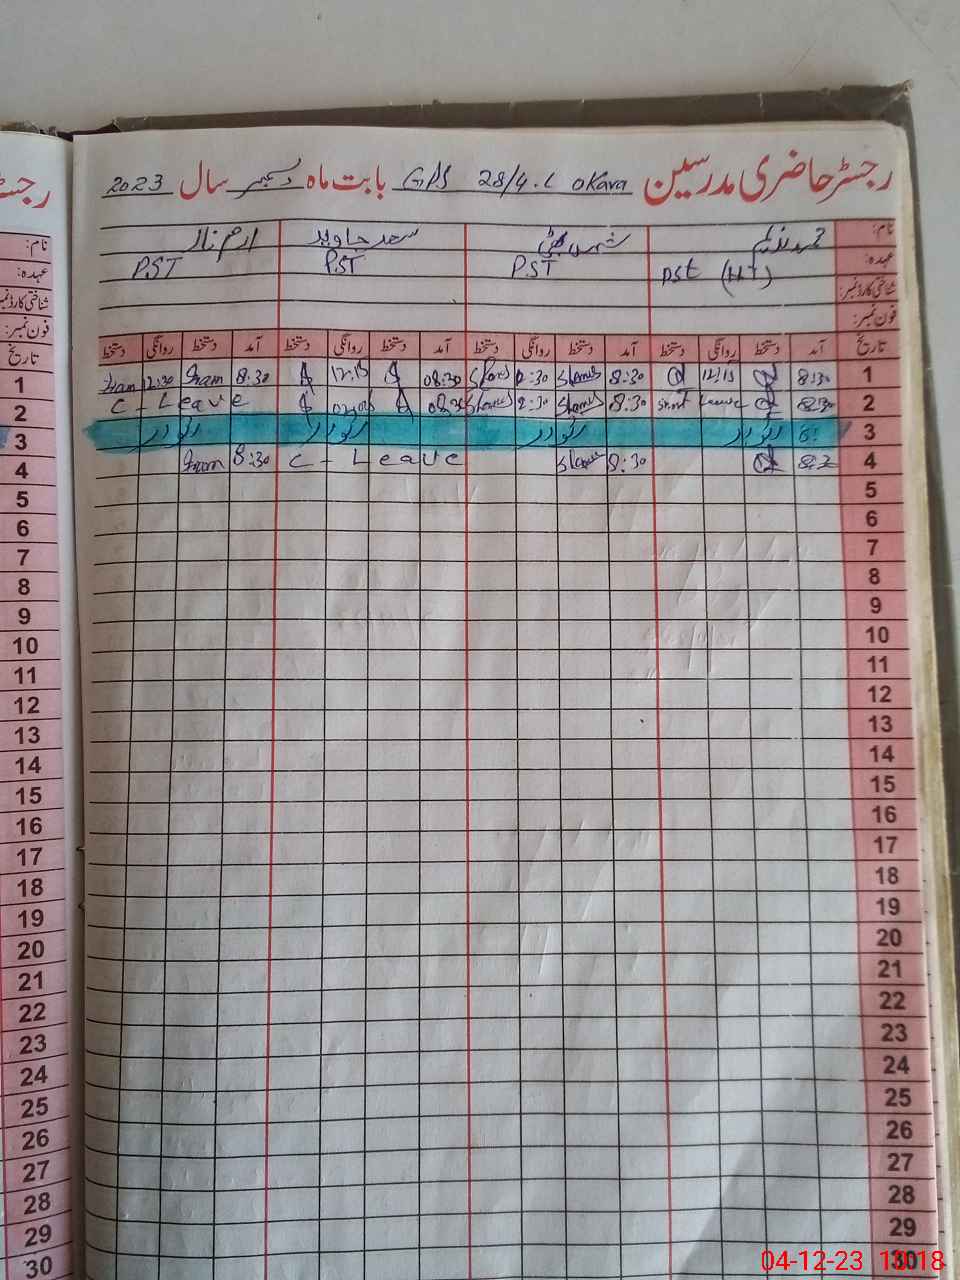 رجسٹر حاضری مدرسین GPS 28/4.L Okara بابت ماہ دسمبر سال 2023
نام: محمد ندیم شہزاد بھٹی سعد جاوید ارم ناز
عہدہ: PSt (HT) P.ST P.ST P.ST
شناختی کارڈ نمبر:
فون نمبر:
تاریخ آمد دستخط روانگی دستخط آمد دستخط روانگی دستخط آمد دستخط روانگی دستخط آمد دستخط روانگی دستخط
1 8:30 12:15 8:30 08:30 12:15 8:30 Iram 12:30 Iram
2 8:30 Short Leave 8:30 C - Leave
3 اتوار اتوار اتوار اتوار
4 8:30 C - Leave 8:30 Iram
5
6
7
8
9
10
11
12
13
14
15
16
17
18
19
20
21
22
23
24
25
26
27
28
29
30
نام:
عہدہ:
شناختی کارڈ نمبر
فون نمبر:
تاریخ
1
2
3
4
5
6
7
8
9
10
11
12
13
14
15
16
17
18
19
20
21
22
23
24
25
26
27
28
29
30
04-12-23 10:18